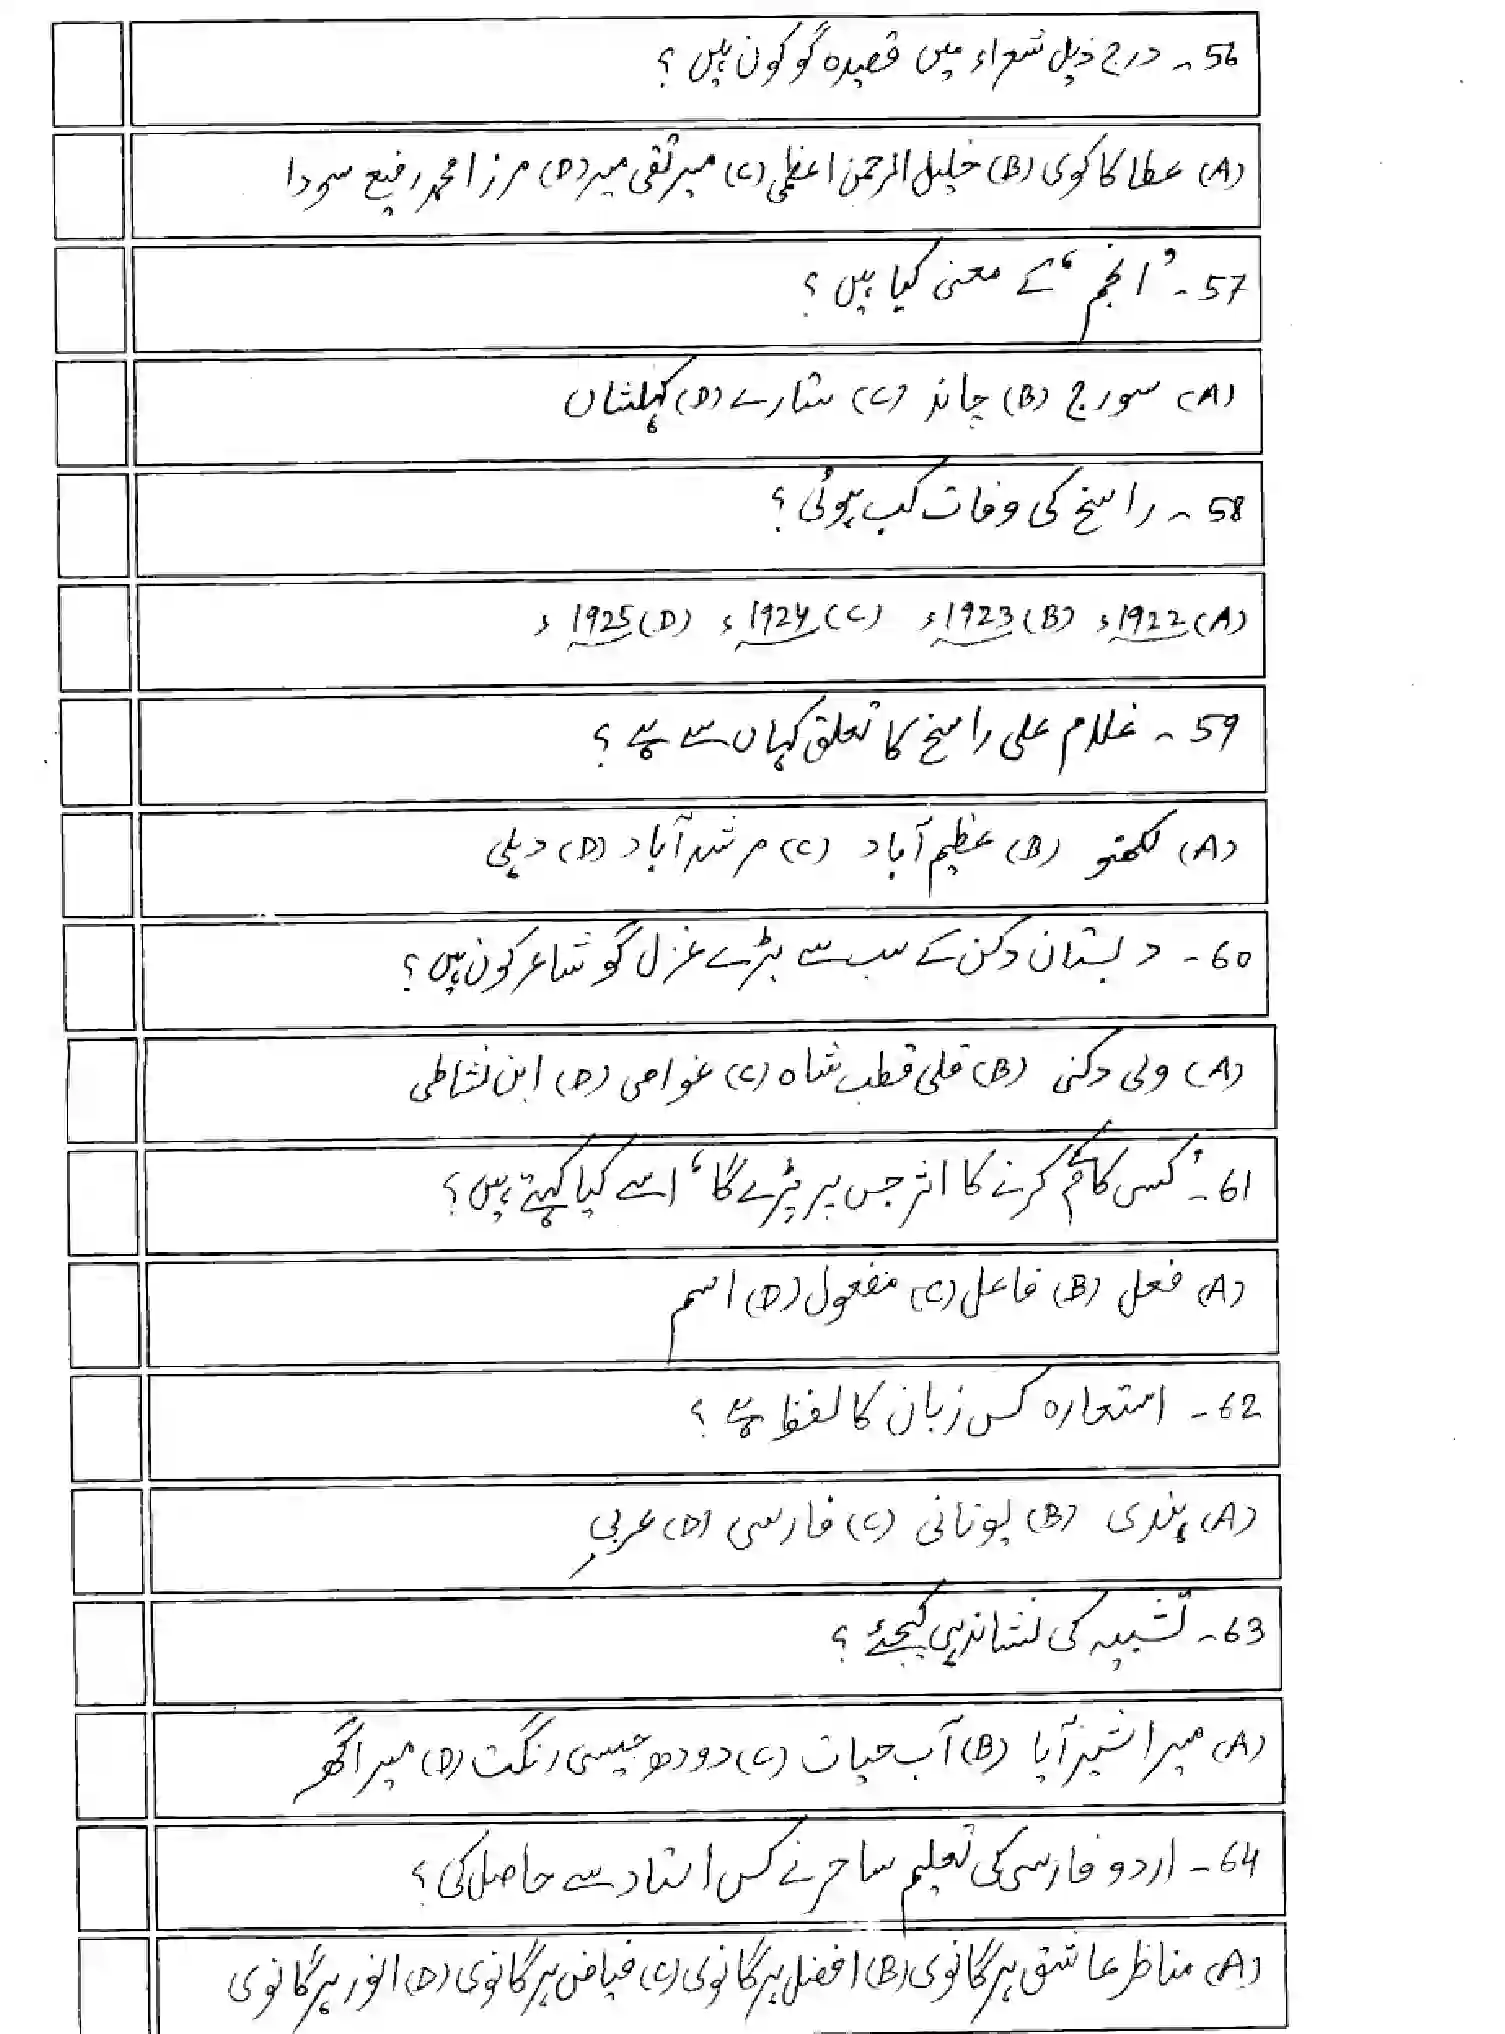 56۔ درج ذیل شعراء میں قصیدہ گو کون ہیں ؟
(A) عطا کاکوی (B) خلیل الرحمن اعظمی (C) میر تقی میر (D) مرزا محمد رفیع سودا
57۔ ’انجم‘ کے معنی کیا ہیں ؟
(A) سورج (B) چاند (C) ستارے (D) کہکشاں
58۔ راسخ کی وفات کب ہوئی ؟
(A) 1922ء (B) 1923ء (C) 1924ء (D) 1925ء
59۔ غلام علی راسخ کا تعلق کہاں سے ہے ؟
(A) لکھنو (B) عظیم آباد (C) مرشدآباد (D) دہلی
60۔ دبستان دکن کے سب سے بڑے غزل گو شاعر کون ہیں ؟
(A) ولی دکنی (B) قلی قطب شاہ (C) غواصی (D) ابن نشاطی
61۔ ’کسی کام کے کرنے کا اثر جس پر پڑے گا‘ اسے کیا کہتے ہیں ؟
(A) فعل (B) فاعل (C) مفعول (D) اسم
62۔ استعارہ کس زبان کا لفظ ہے ؟
(A) ہندی (B) یونانی (C) فارسی (D) عربی
63۔ تشبیہ کی نشاندہی کیجئے ؟
(A) میرا شیر آیا (B) آب حیات (C) دودھ جیسی رنگت (D) میرا گھر
64۔ اردو فارسی کی تعلیم ساحر نے کس استاد سے حاصل کی ؟
(A) مناظر عاشق ہرگانوی (B) افضل ہرگانوی (C) فیاض ہرگانوی (D) انور ہرگانوی